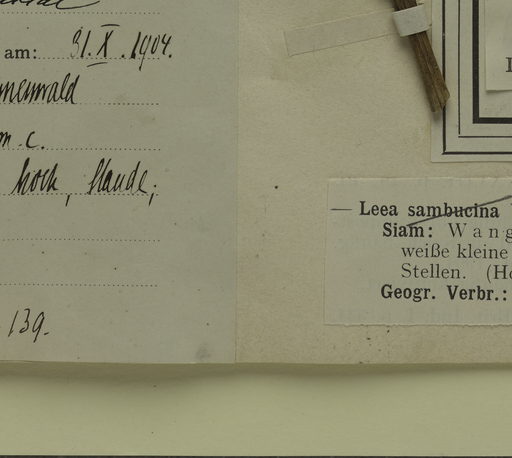 am: 31. X. 1904.
m. c.
hoch, Staude;
139.
Leea sambucina
Siam: Wang
weiße kleine
Stellen. (Ho
Geogr. Verbr.: